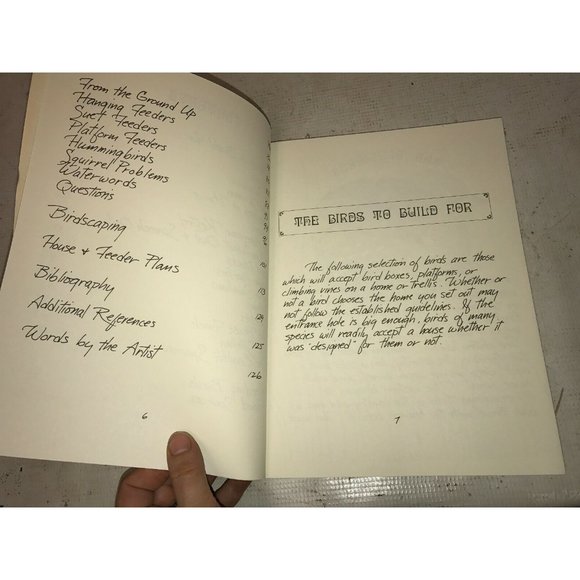 From the Ground Up
Hanging Feeders
Suet Feeders
Platform Feeders
Hummingbirds
Squirrel Problems
Waterwords
Questions
Birdscaping
House & Feeder Plans
Bibliography
Additional References
Words by the Artist
113
124
125
126
6
THE BIRDS TO BUILD FOR
The following selection of birds are those
which will accept bird boxes, platforms, or
climbing vines on a home or trellis. Whether or
not a bird chooses the home you set out may
not follow the established guidelines. If the
entrance hole is big enough, birds of many
species will readily accept a house whether it
was "designed" for them or not.
7